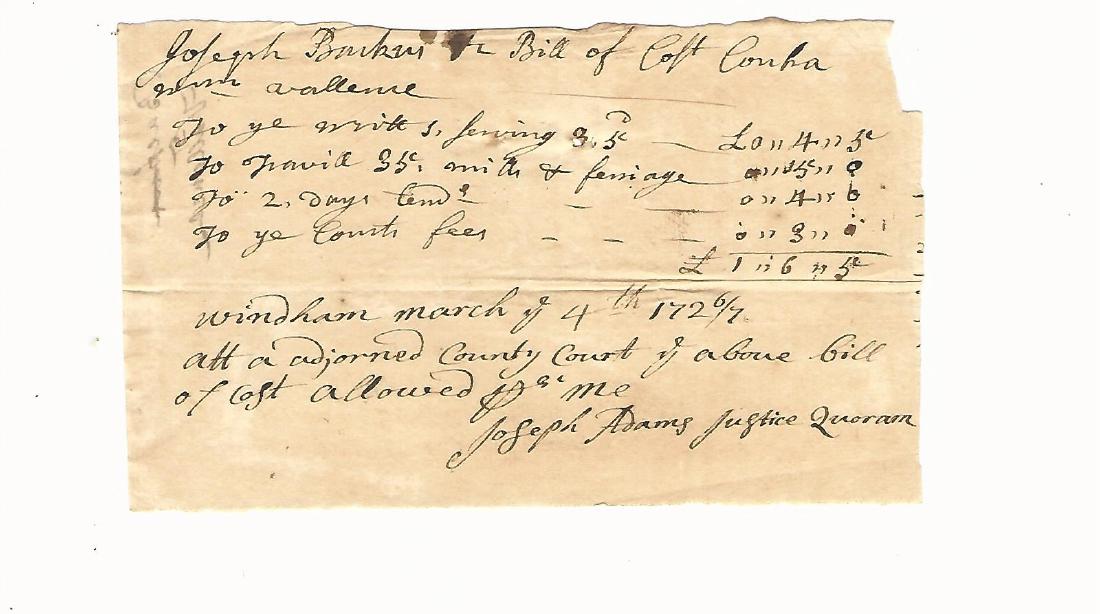 Joseph Backus Bill of Cost Contra
Wm wallence
To ye writts, serving 3. 5 — £0 " 4 " 5
To Travill 35 mills & ferriage 0 " 15 " 0
To 2, days tend — — 0 " 4 " 0
To ye Courts fees — — — 0 " 3 " 0
£ 1 " 6 " 5
windham march ye 4th 1726/7
att a adjorned County Court ye above bill
of Cost allowed pr me
Joseph Adams Justice Quoram